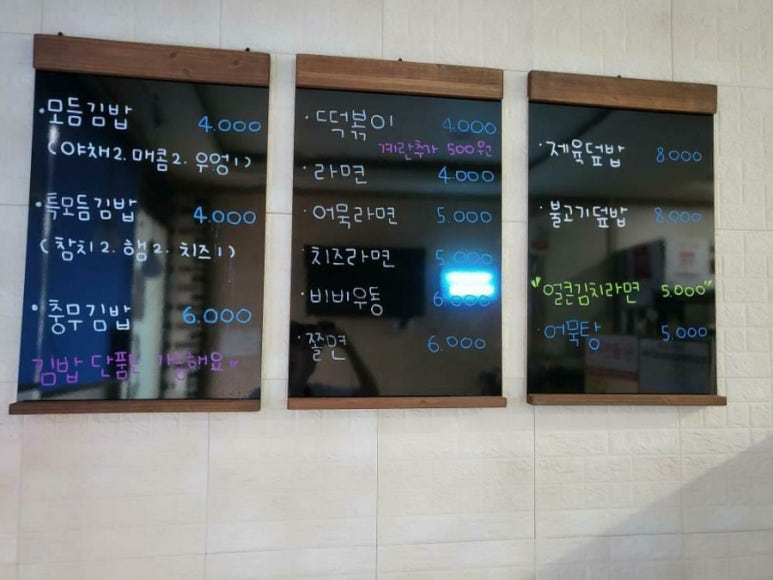 ·모듬김밥 4.000
(야채2. 매콤2. 우엉1)
·특모듬김밥 4.000
(참치2. 햄2. 치즈1)
·충무김밥 6.000
김밥 단품도 가능해요
·떡볶이 4.000
계란추가 500원
·라면 4.000
·어묵라면 5.000
·치즈라면 5.000
·비비우동 6.000
·쫄면 6.000
·제육덮밥 8.000
·불고기덮밥 8.000
"얼큰김치라면 5.000"
·어묵탕 5.000